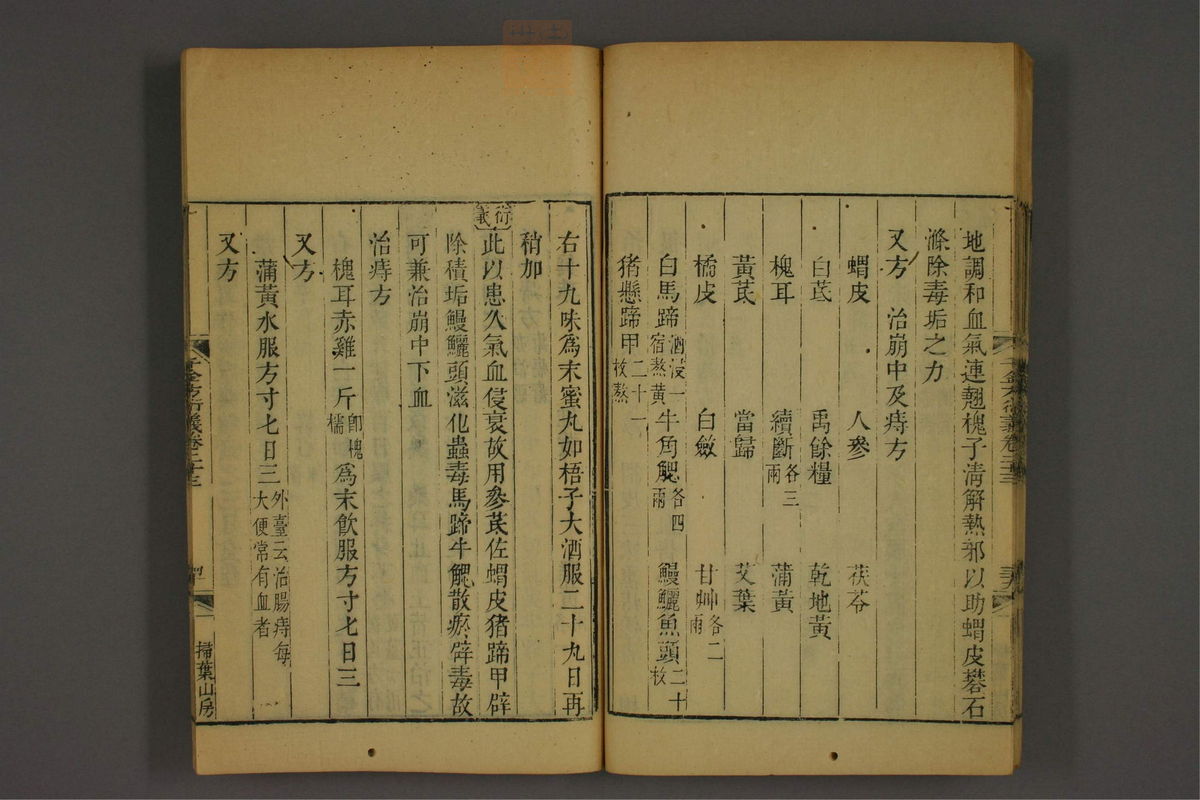 地調和血氣連翹槐子淸解熱邪以助蝟皮礬石
滌除毒垢之力
又方　治崩中及痔方
蝟皮　人參　茯苓
白芷　禹餘糧　乾地黃
槐耳　續斷各三兩　蒲黃
黃芪　當歸　艾葉
橘皮　白斂　甘艸各二兩
白馬蹄酒浸一宿熬黃　牛角䚡各四兩　鰻鱺魚頭二十枚
猪懸蹄甲二十一枚熬
千金方衍義卷二十三
右十九味爲末蜜丸如梧子大酒服二十丸日再
稍加
衍義
此以患久氣血侵衰故用參芪佐蝟皮猪蹄甲辟
除積垢鰻鱺頭滋化蟲毒馬蹄牛䚡散瘀辟毒故
可兼治崩中下血
治痔方
槐耳赤雞一斤卽槐檽爲末飮服方寸匕日三
又方
蒲黃水服方寸匕日三外臺云治腸痔每大便常有血者
又方
千金方衍義卷二十三
掃葉山房